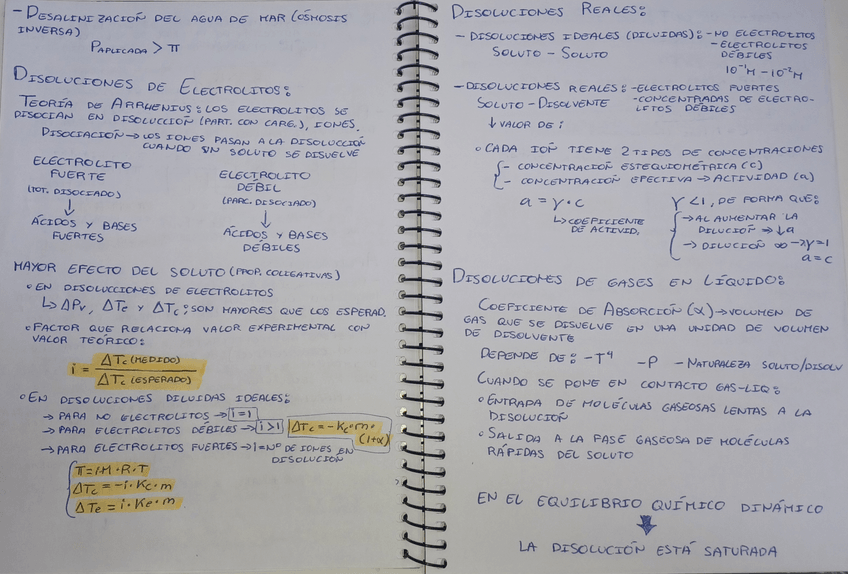 - DESALINIZACIÓN DEL AGUA DE MAR (ÓSMOSIS
INVERSA)
P APLICADA > π
DISOLUCIONES DE ELECTROLITOS:
TEORÍA DE ARRHENIUS: LOS ELECTROLITOS SE
DISOCIAN EN DISOLUCIÓN (PART. CON CARG.), IONES.
DISOCIACIÓN → LOS IONES PASAN A LA DISOLUCCIÓN
CUANDO UN SOLUTO SE DISUELVE
ELECTROLITO
FUERTE
(TOT. DISOCIADO)
↓
ÁCIDOS Y BASES
FUERTES
ELECTROLITO
DÉBIL
(PARC. DISOCIADO)
↓
ÁCIDOS Y BASES
DÉBILES
MAYOR EFECTO DEL SOLUTO (PROP. COLIGATIVAS)
• EN DISOLUCCIONES DE ELECTROLITOS
↳ ΔPv, ΔTe Y ΔTc: SON MAYORES QUE LOS ESPERAD.
• FACTOR QUE RELACIONA VALOR EXPERIMENTAL CON
VALOR TEÓRICO:
i = ΔTc (MEDIDO) / ΔTc (ESPERADO)
• EN DISOLUCIONES DILUIDAS IDEALES:
→ PARA NO ELECTROLITOS → i=1
→ PARA ELECTROLITOS DÉBILES → i>1 ΔTc = -Kc·m·
(1+α)
→ PARA ELECTROLITOS FUERTES → i = Nº DE IONES EN
DISOLUCIÓN
π = i·M·R·T
ΔTc = -i·Kc·m
ΔTe = i·Ke·m
DISOLUCIONES REALES:
- DISOLUCIONES IDEALES (DILUIDAS): - NO ELECTROLITOS
SOLUTO - SOLUTO - ELECTROLITOS
DÉBILES
10⁻¹M - 10⁻²M
- DISOLUCIONES REALES: - ELECTROLITOS FUERTES
SOLUTO - DISOLVENTE - CONCENTRADAS DE ELECTRO-
LITOS DÉBILES
↓ VALOR DE i
• CADA IÓN TIENE 2 TIPOS DE CONCENTRACIONES
- CONCENTRACIÓN ESTEQUIOMÉTRICA (C)
- CONCENTRACIÓN EFECTIVA → ACTIVIDAD (a)
a = γ · c
↳ COEFICIENTE
DE ACTIVID.
γ < 1, DE FORMA QUE:
→ AL AUMENTAR LA
DILUCIÓN → ↓a
→ DILUCIÓN ∞ → γ=1
a=c
DISOLUCIONES DE GASES EN LÍQUIDO:
COEFICIENTE DE ABSORCIÓN (α) → VOLUMEN DE
GAS QUE SE DISUELVE EN UNA UNIDAD DE VOLUMEN
DE DISOLVENTE
DEPENDE DE: - Tª - P - NATURALEZA SOLUTO/DISOLV
CUANDO SE PONE EN CONTACTO GAS-LIQ:
• ENTRADA DE MOLÉCULAS GASEOSAS LENTAS A LA
DISOLUCIÓN
• SALIDA A LA FASE GASEOSA DE MOLÉCULAS
RÁPIDAS DEL SOLUTO
EN EL EQUILIBRIO QUÍMICO DINÁMICO
↓
LA DISOLUCIÓN ESTÁ SATURADA